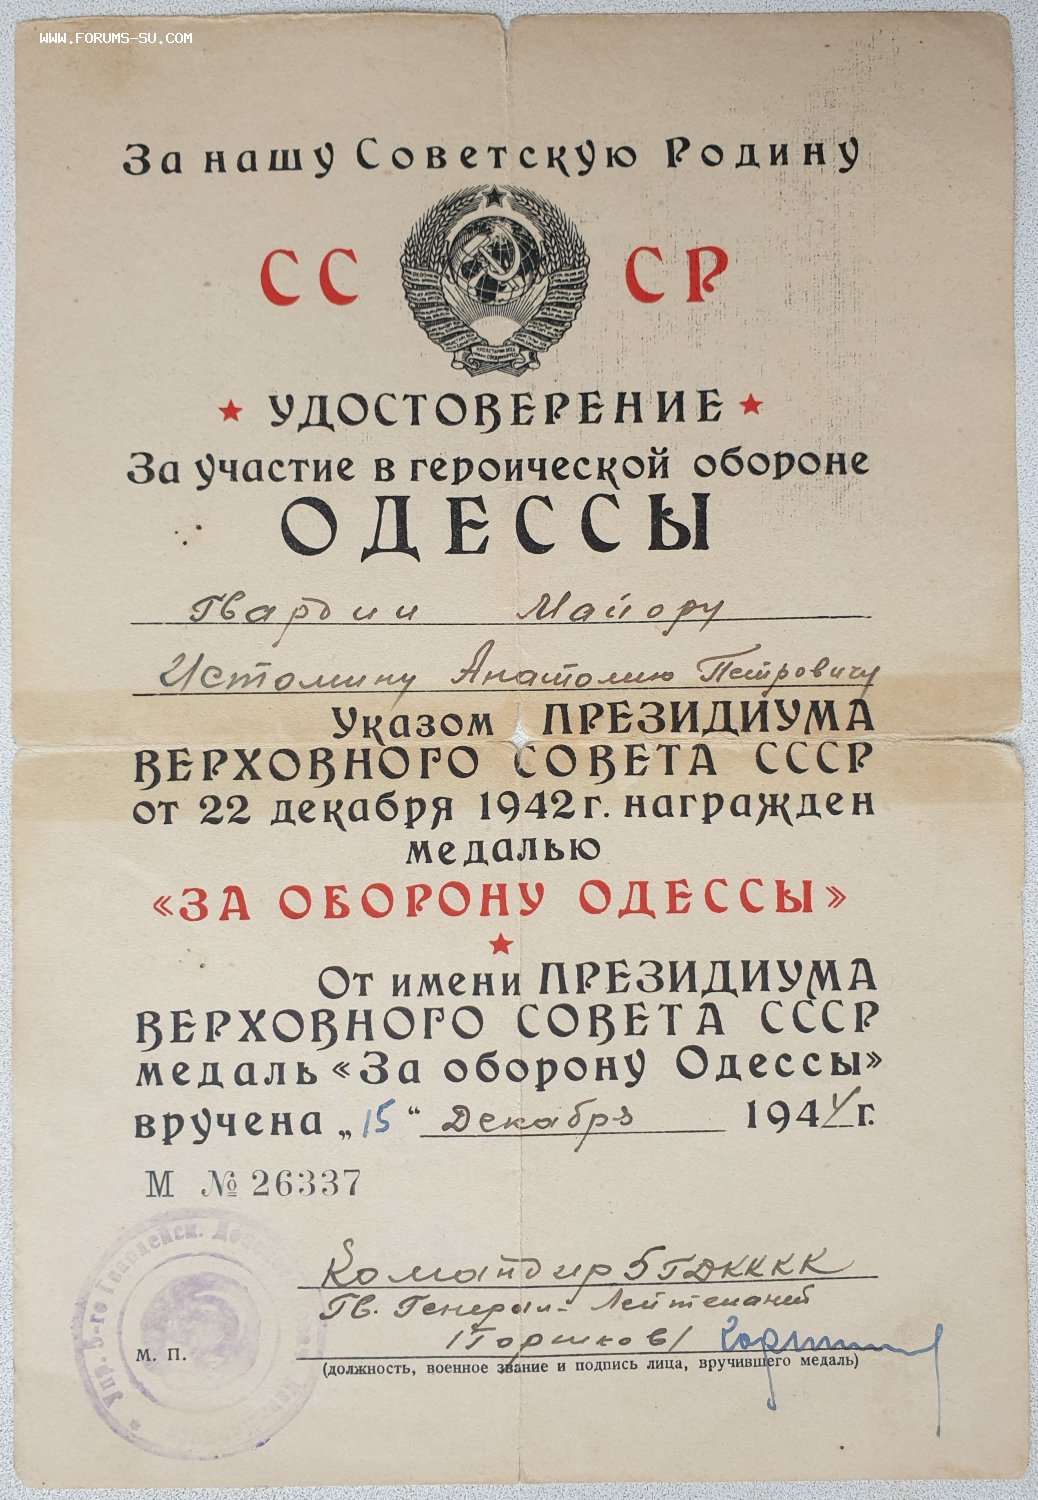 WWW.FORUMS-SU.COM
За нашу Советскую Родину
СССР
УДОСТОВЕРЕНИЕ
За участие в героической обороне
ОДЕССЫ
Гвардии Майору
Истомину Анатолию Петровичу
Указом ПРЕЗИДИУМА
ВЕРХОВНОГО СОВЕТА СССР
от 22 декабря 1942 г. награжден
медалью
«ЗА ОБОРОНУ ОДЕССЫ»
От имени ПРЕЗИДИУМА
ВЕРХОВНОГО СОВЕТА СССР
медаль «За оборону Одессы»
вручена „15“ Декабря 1944 г.
М № 26337
Командир 5 ГДКККК
Гв. Генерал-Лейтенант
/Горшков/
М. П.
(должность, военное звание и подпись лица, вручившего медаль)
Упр. 5-го Гвардейск.